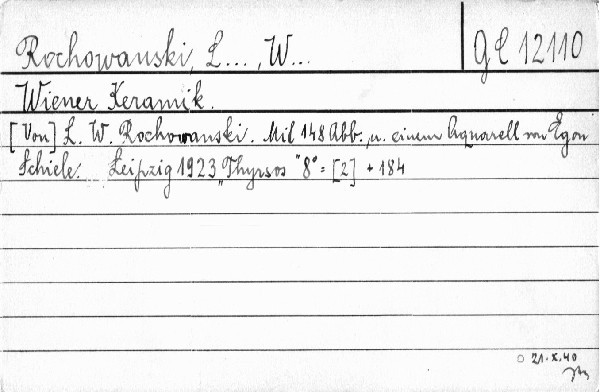 Rochowanski, L... , W...
GE 12110
Wiener Keramik.
[Von] L. W. Rochowanski. Mit 148 Abb. u. einem Aquarell von Egon
Schiele. Leipzig 1923 „Thyrsos" 8° = [2] + 184
21. X. 40